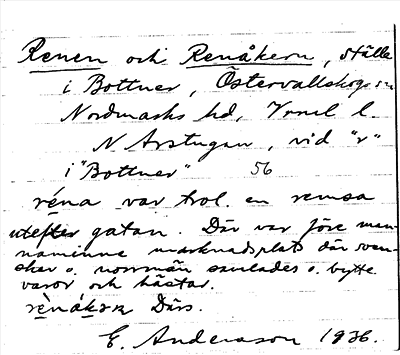 Renen och Renåkern, ställe
i Bottner, Östervallskogs sn
Nordmarks hd, Vrml l.
N Arstugan, vid "r"
i "Bottner" 56
réna var trol. en remsa
utefter gatan. Där var före man-
naminne marknadsplats där sven-
skar o. norrmän samlades o. bytte
varor och hästar.
Därs.
E. Andersson 1936.